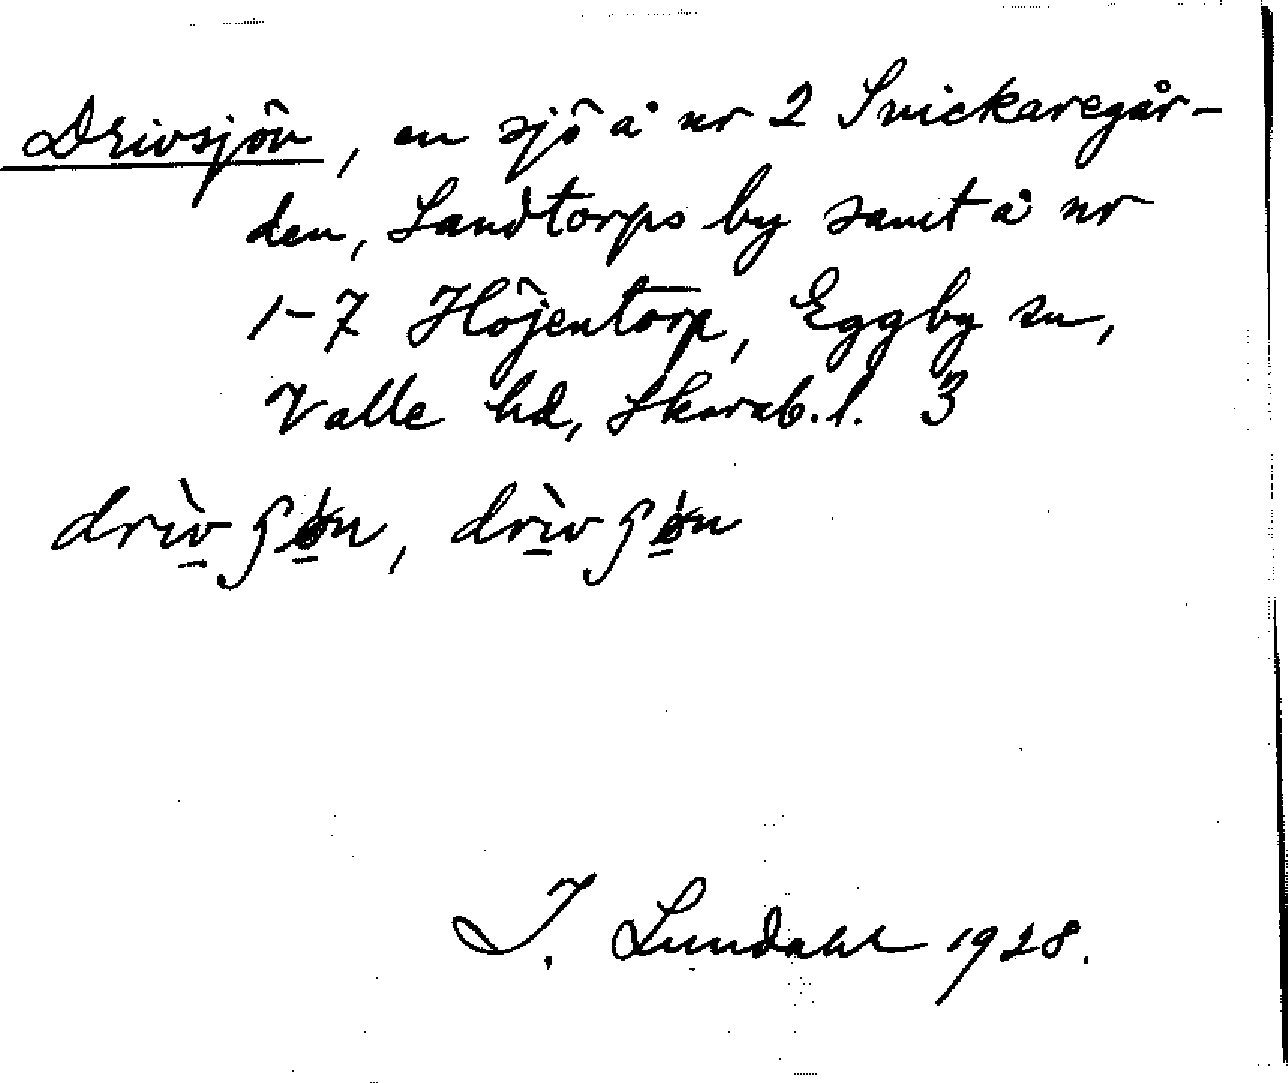 Drivsjön, en sjö å nr 2 Snickaregår-
den, Landtorps by samt å nr
1-7 Höjentorp, Eggby sn,
Valle hd, Skarab.l. 3
drìv̱ʃø̱n, drì̱vʃø̱n
I. Lundahl 1928.